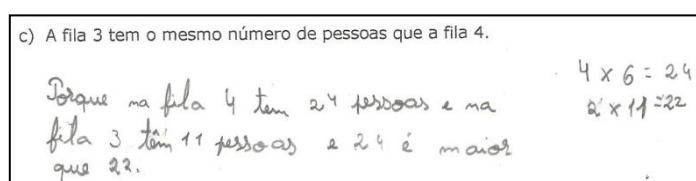 c) A fila 3 tem o mesmo número de pessoas que a fila 4.
4 x 6 = 24
2 x 11 = 22
Porque na fila 4 tem 24 pessoas e na
fila 3 têm 11 pessoas e 24 é maior
que 22.